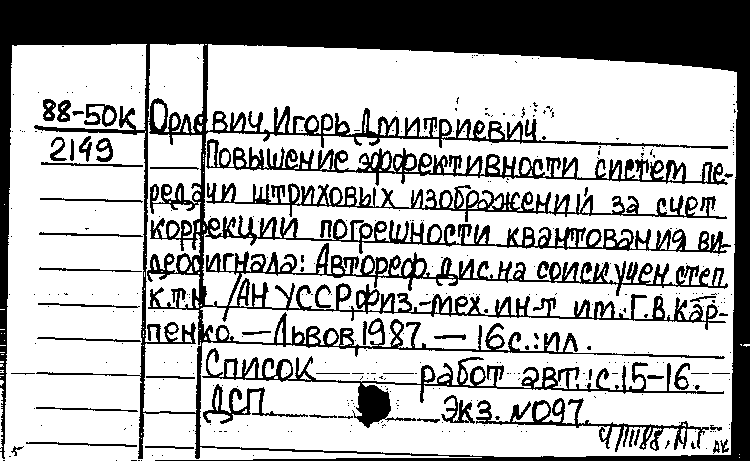 88-50К Орлевич, Игорь Дмитриевич.
2149 Повышение эффективности систем пе-
редачи штриховых изображений за счет
коррекции погрешности квантования ви-
деосигнала: Автореф. дис. на соиск. учен. степ.
к.т.н. /АН УССР, Физ.-мех. ин-т им. Г.В. Кар-
пенко. — Львов, 1987. — 16с.: ил.
Список работ авт.: с.15-16.
ДСП. Экз. №097.